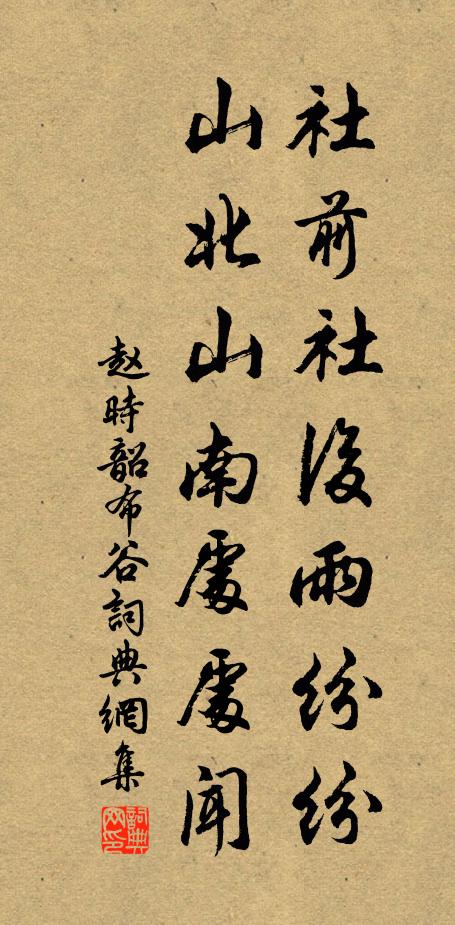 社前社後雨紛紛
山北山南處處聞
赵時韶布谷詞典網集
詞典網印